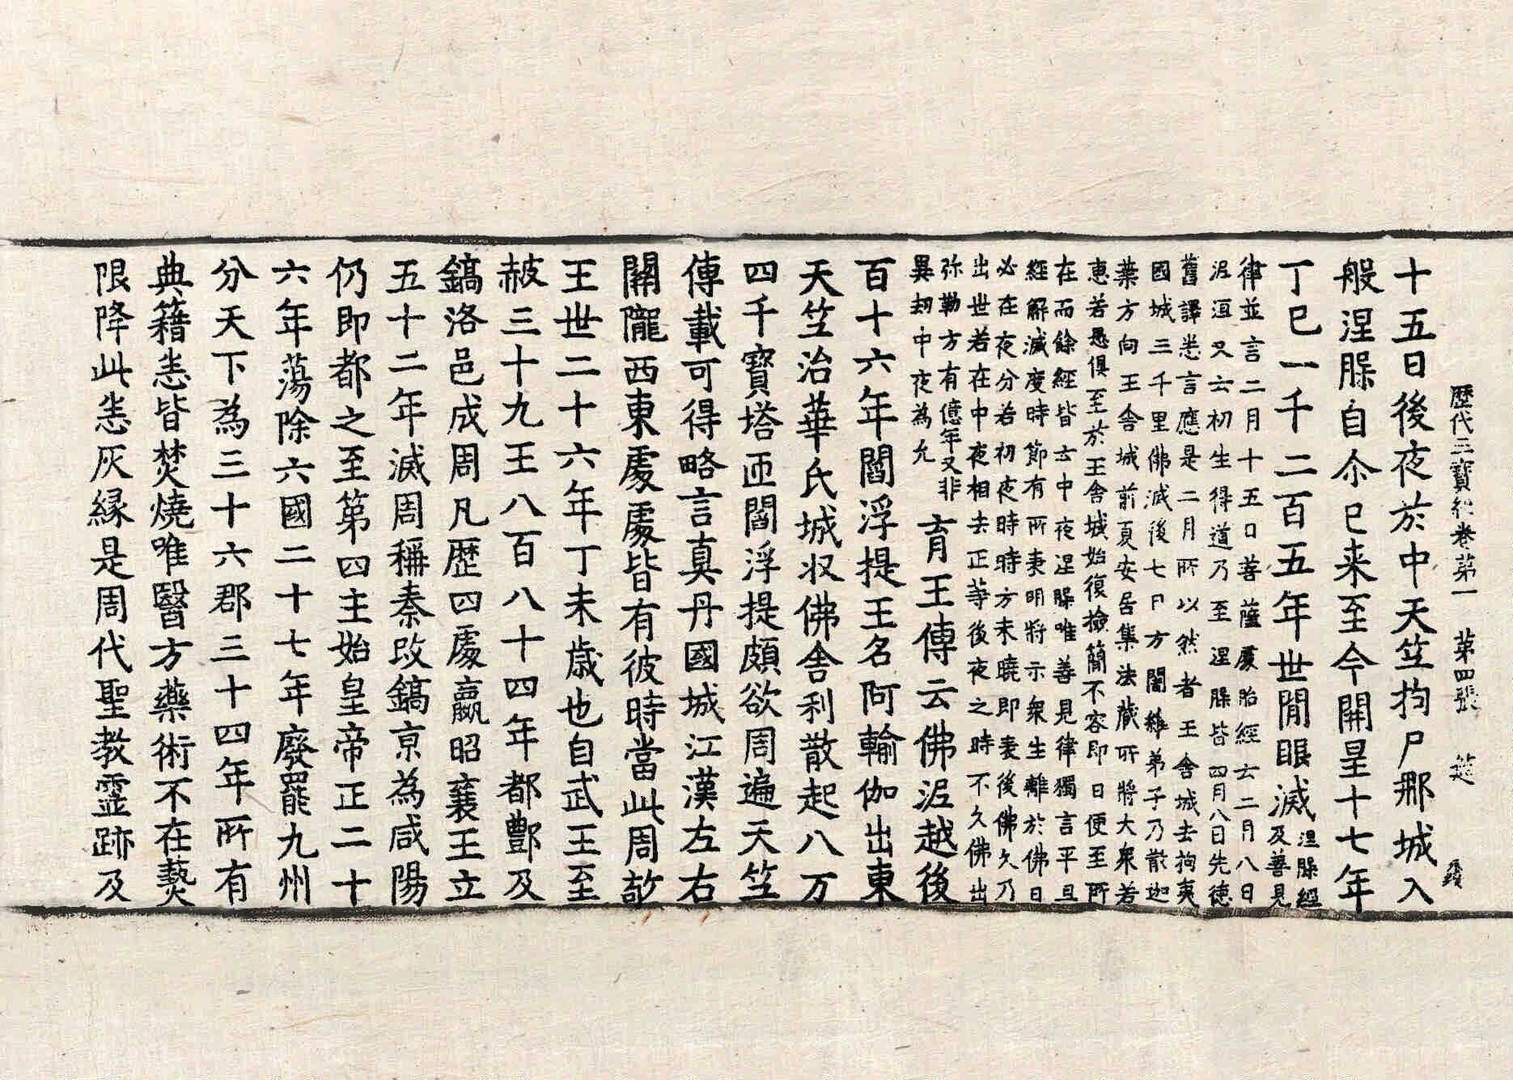 歷代三寶紀卷第一 第四張
十五日後夜於中天竺拘尸那城入
般涅槃自尒已来至今開皇十七年
丁巳一千二百五年世間眼滅涅槃經及善見
律並言二月十五日菩薩處胎經云二月八日
泥洹又云初生得道乃至涅槃皆四月八日先德
舊譯悉言應是二月所以然者王舍城去拘夷
國城三千里佛滅後七日方闍維弟子乃散迦
葉方向王舍城前夏安居集法藏所將大衆若
惠若愚俱至於王舍城始復撿簡不容即日便至所
在而餘經皆云中夜涅槃唯善見律獨言平旦
經解滅度時節有所表明將示衆生離於佛日
必在夜分若初夜時時方未曉即表後佛久乃
出世若在中夜相去正等後夜之時不久佛出
弥勒方有億年又非
異刼中夜為允
育王傳云佛泥越後
百十六年閻浮提王名阿輸伽出東
天竺治華氏城収佛舍利散起八万
四千寶塔帀閻浮提頗欲周遍天竺
傳載可得略言真丹國城江漢左右
關隴西東處處皆有彼時當此周敬
王世二十六年丁未歲也自武王至
赧三十九王八百八十四年都酆及
鎬洛邑成周凡歷四處嬴昭襄王立
五十二年滅周稱秦改鎬京為咸陽
仍即都之至第四主始皇帝正二十
六年蕩除六國二十七年廢罷九州
分天下為三十六郡三十四年所有
典籍悉皆焚燒唯醫方藥術不在爇
限降此悉灰緣是周代聖教靈跡及